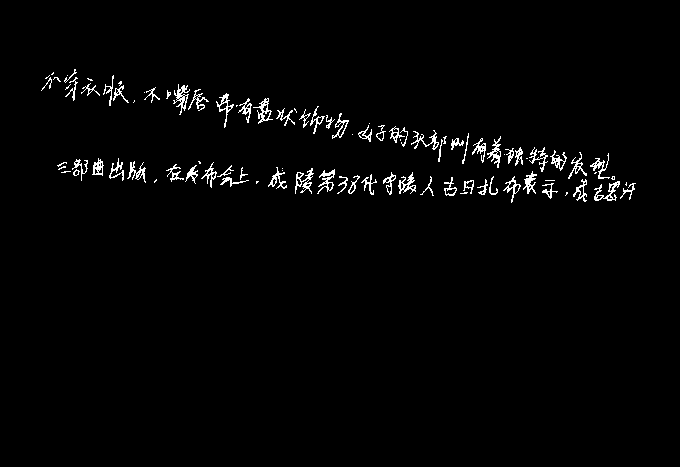 不穿衣服，下嘴唇带有盘状饰物，女子的头部则有着独特的发型。
三部曲出版，在发布会上，成陵第38代守陵人古日扎布表示，成吉思汗